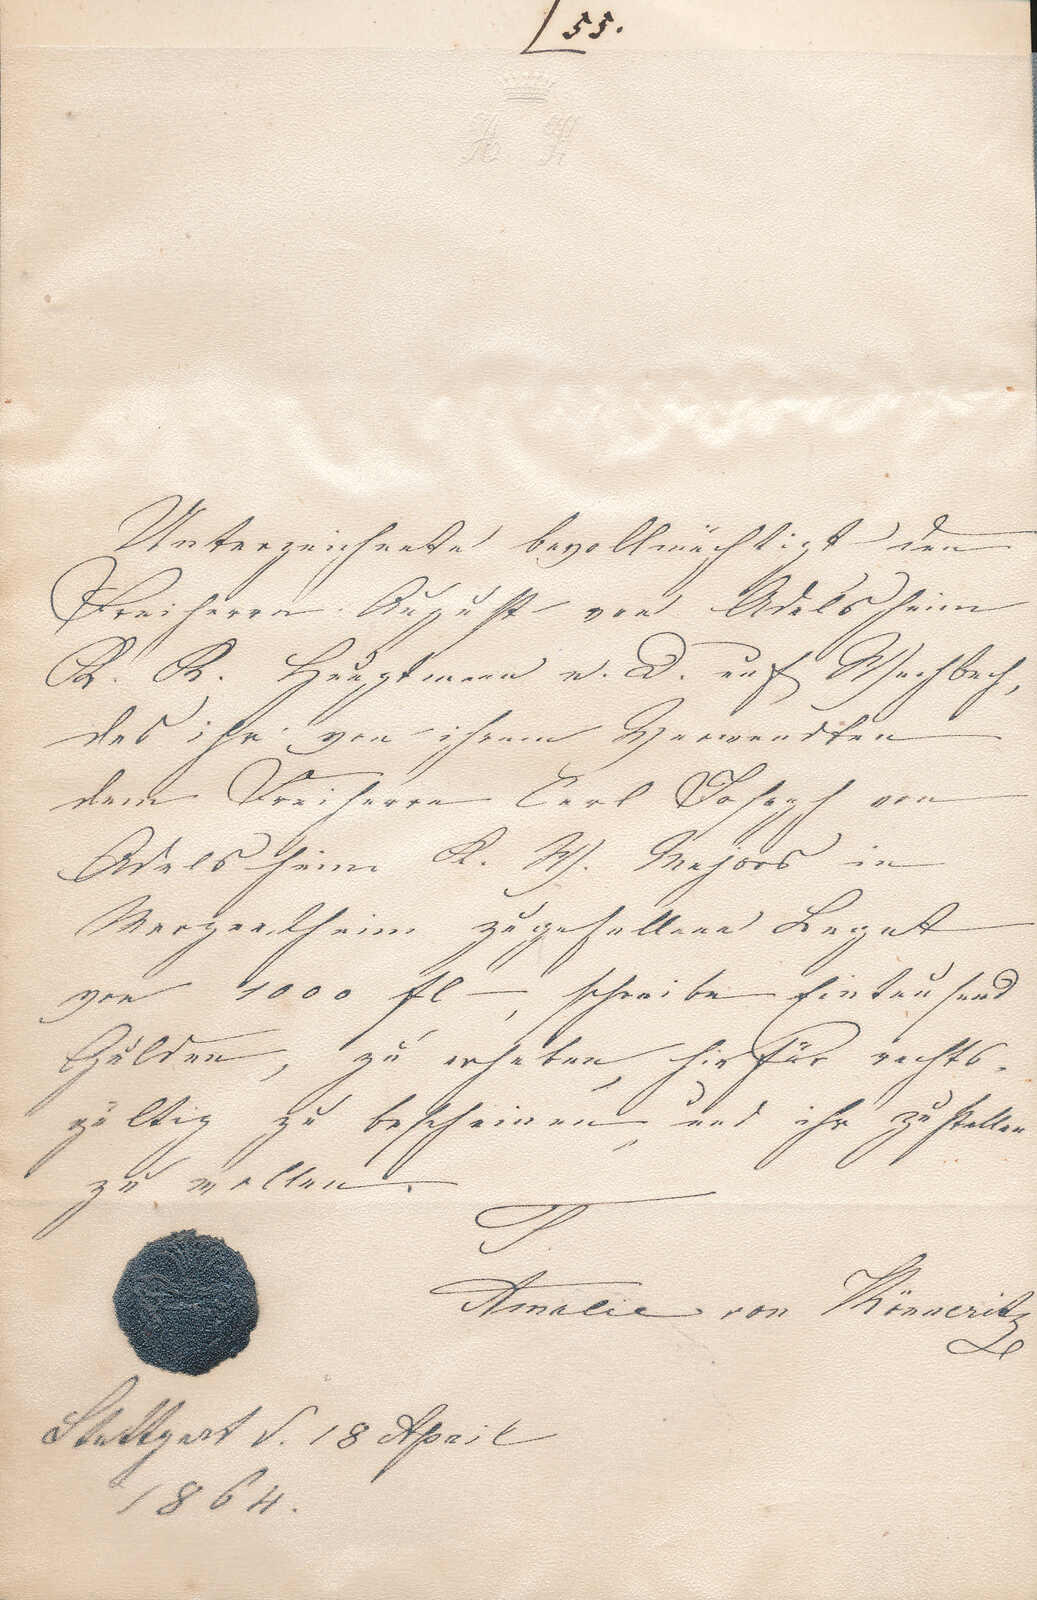 55.
A K
Unterzeichnete bevollmächtigt den
Freiherrn August von Adelsheim
K. K. Hauptmann a. D. auf Wachbach,
das ihr von ihrem Verwandten
dem Freiherrn Carl Joseph von
Adelsheim K. W. Majors in
Mergentheim zugefallene Legat
von 1000 fl –, schreibe Eintausend
Gulden, zu erheben, hierfür rechts-
gültig zu bescheinen, und ihr zustellen
zu wollen.
Amalie von Könneritz
Stuttgart d. 18 April
1864.